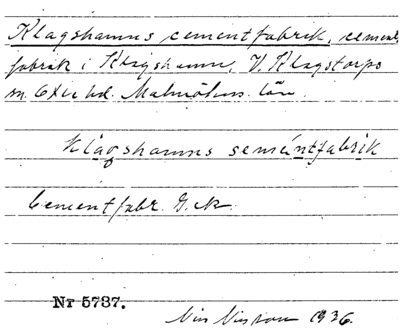 Klagshamns cementfabrik, cement-
fabrik i Klagshamn, V. Klagstorps
sn. Oxie hd. Malmöhus län.
klagshamns semäntfabrik
Cementfabr. G.ck.
Nr 5737.
1936.